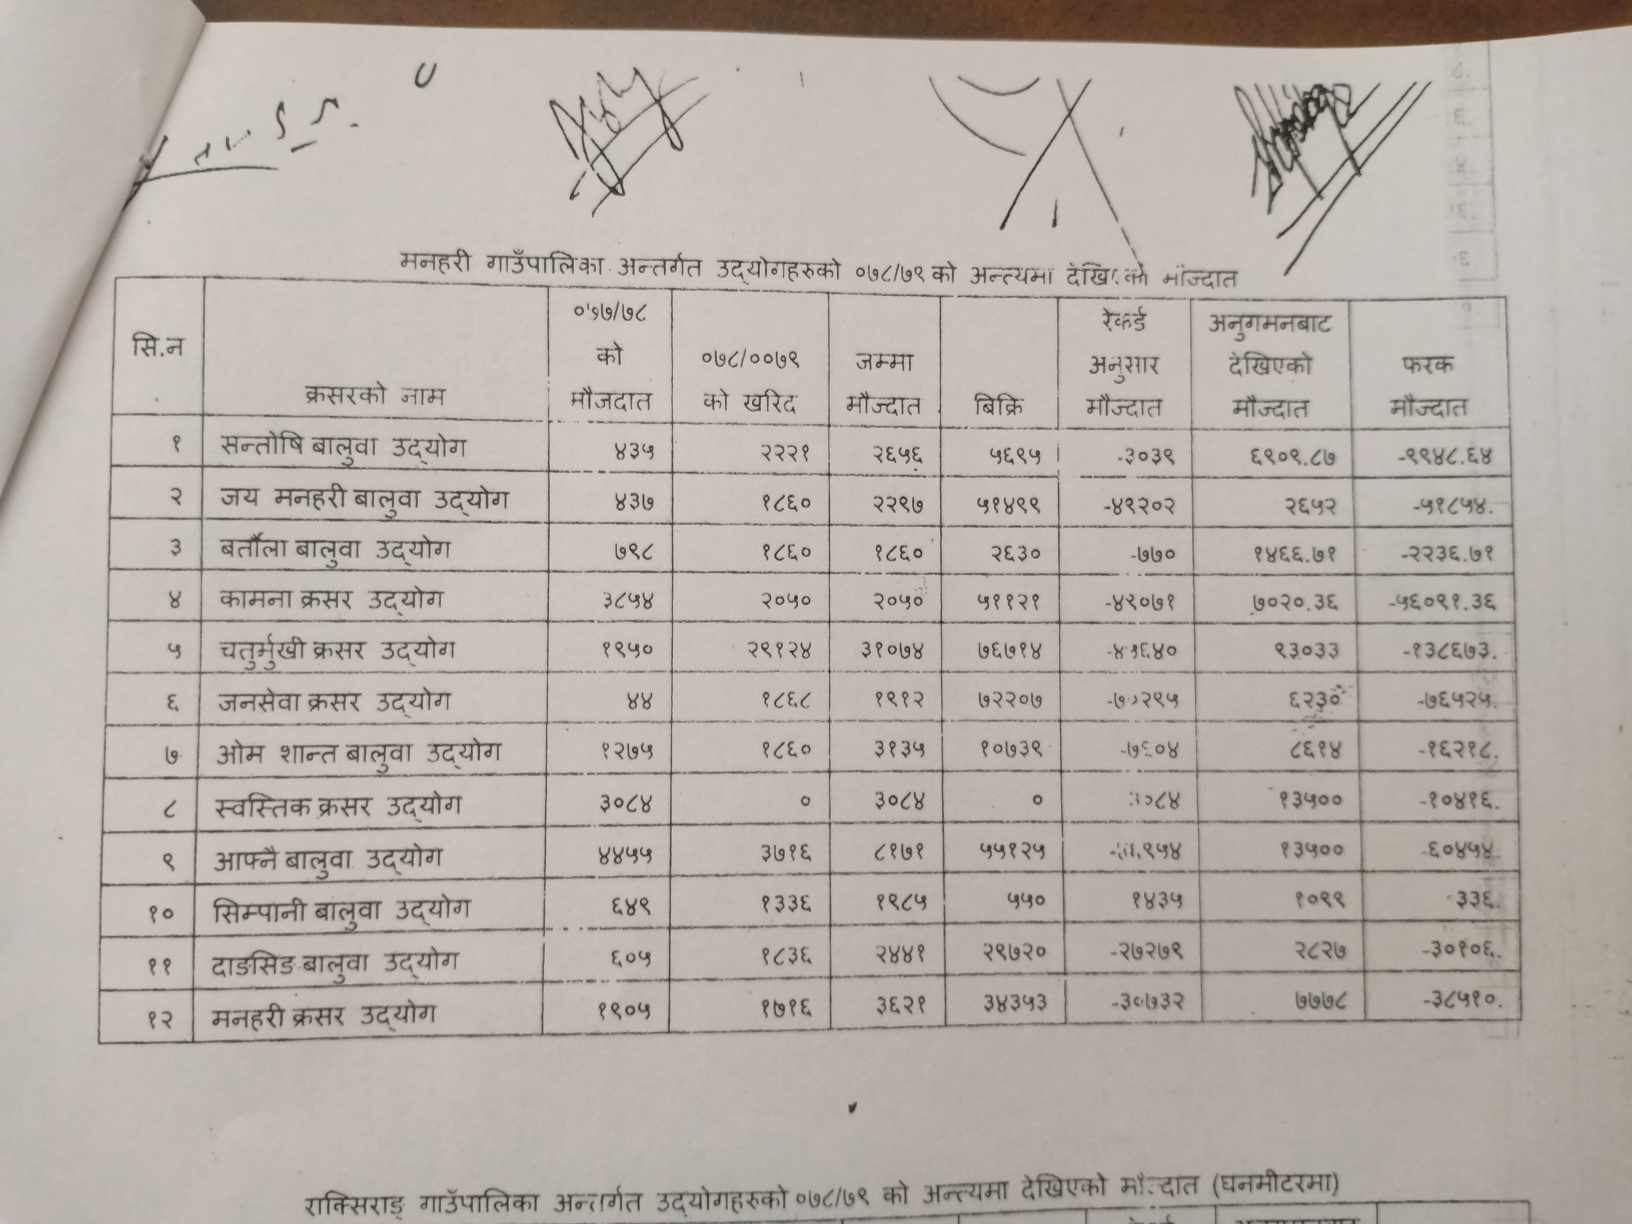 मनहरी गाउँपालिका अन्तर्गत उद्योगहरुको ०७८/७९ को अन्त्यमा देखिएको मौज्दात
सि.न क्रसरको नाम ०७७/७८ को मौजदात ०७८/००७९ को खरिद जम्मा मौज्दात बिक्रि रेकर्ड अनुसार मौज्दात अनुगमनबाट देखिएको मौज्दात फरक मौज्दात
१ सन्तोषि बालुवा उद्योग ४३५ २२२१ २६५६ ५६९५ -३०३९ ६९०९.८७ -९९४८.६४
२ जय मनहरी बालुवा उद्योग ४३७ १८६० २२९७ ५१४९९ -४९२०२ २६५२ -५१८५४.
३ बर्तौला बालुवा उद्योग ७९८ १८६० १८६० २६३० -७७० १४६६.७१ -२२३६.७१
४ कामना क्रसर उद्योग ३८५४ २०५० २०५० ५११२१ -४९०७१ ७०२०.३६ -५६०९१.३६
५ चतुर्मुखी क्रसर उद्योग १९५० २९१२४ ३१०७४ ७६७१४ ९३०३३ -१३८६७३.
६ जनसेवा क्रसर उद्योग ४४ १८६८ १९१२ ७२२०७ -७०२९५ ६२३० -७६५२५.
७ ओम शान्त बालुवा उद्योग १२७५ १८६० ३१३५ १०७३९ -७६०४ ८६१४ -१६२१८.
८ स्वस्तिक क्रसर उद्योग ३०८४ ० ३०८४ ० ३०८४ १३५०० -१०४१६.
९ आफ्नै बालुवा उद्योग ४४५५ ३७१६ ८१७१ ५५१२५ १३५०० -६०४५४.
१० सिम्पानी बालुवा उद्योग ६४९ १३३६ १९८५ ५५० १४३५ १०९९ ३३६.
११ दाङसिङ बालुवा उद्योग ६०५ १८३६ २४४१ २९७२० -२७२७९ २८२७ -३०१०६.
१२ मनहरी क्रसर उद्योग १९०५ १७१६ ३६२१ ३४३५३ -३०७३२ ७७७८ -३८५१०.
राक्सिराङ् गाउँपालिका अन्तर्गत उद्योगहरुको ०७८/७९ को अन्त्यमा देखिएको मौज्दात (घनमीटरमा)